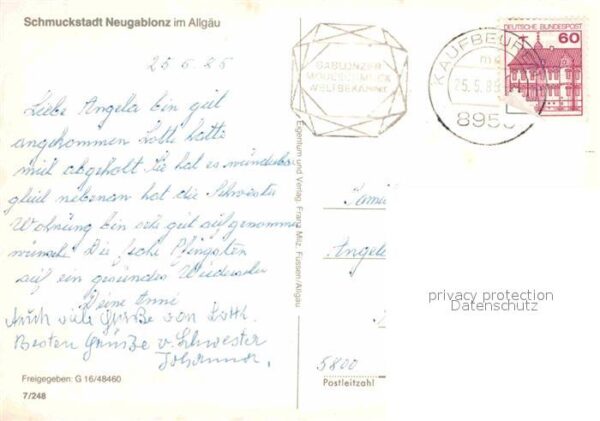 Schmuckstadt Neugablonz im Allgäu
25 5 85
Liebe Angela bin gut
angekommen Lotti hatte
mich abgeholt Sie hat es wunderbar
gleich nebenan hat die Schwester
Wohnung bin sehr gut aufgenommen
wünsche Dir frohe Pfingsten
auf ein gesundes Wiedersehn
Deine Anni
Auch viele Grüße von Lotti
Besten Grüße v. Schwester
Johanna.
Freigegeben: G 16/48460
7/248
Eigentum und Verlag Franz Milz, Füssen/Allgäu
GABLONZER
MODESCHMUCK
WELTBEKANNT
KAUFBEUREN
25.5.85
895
DEUTSCHE BUNDESPOST
60
Famil
Angele
privacy protection
Datenschutz
5800
Postleitzahl